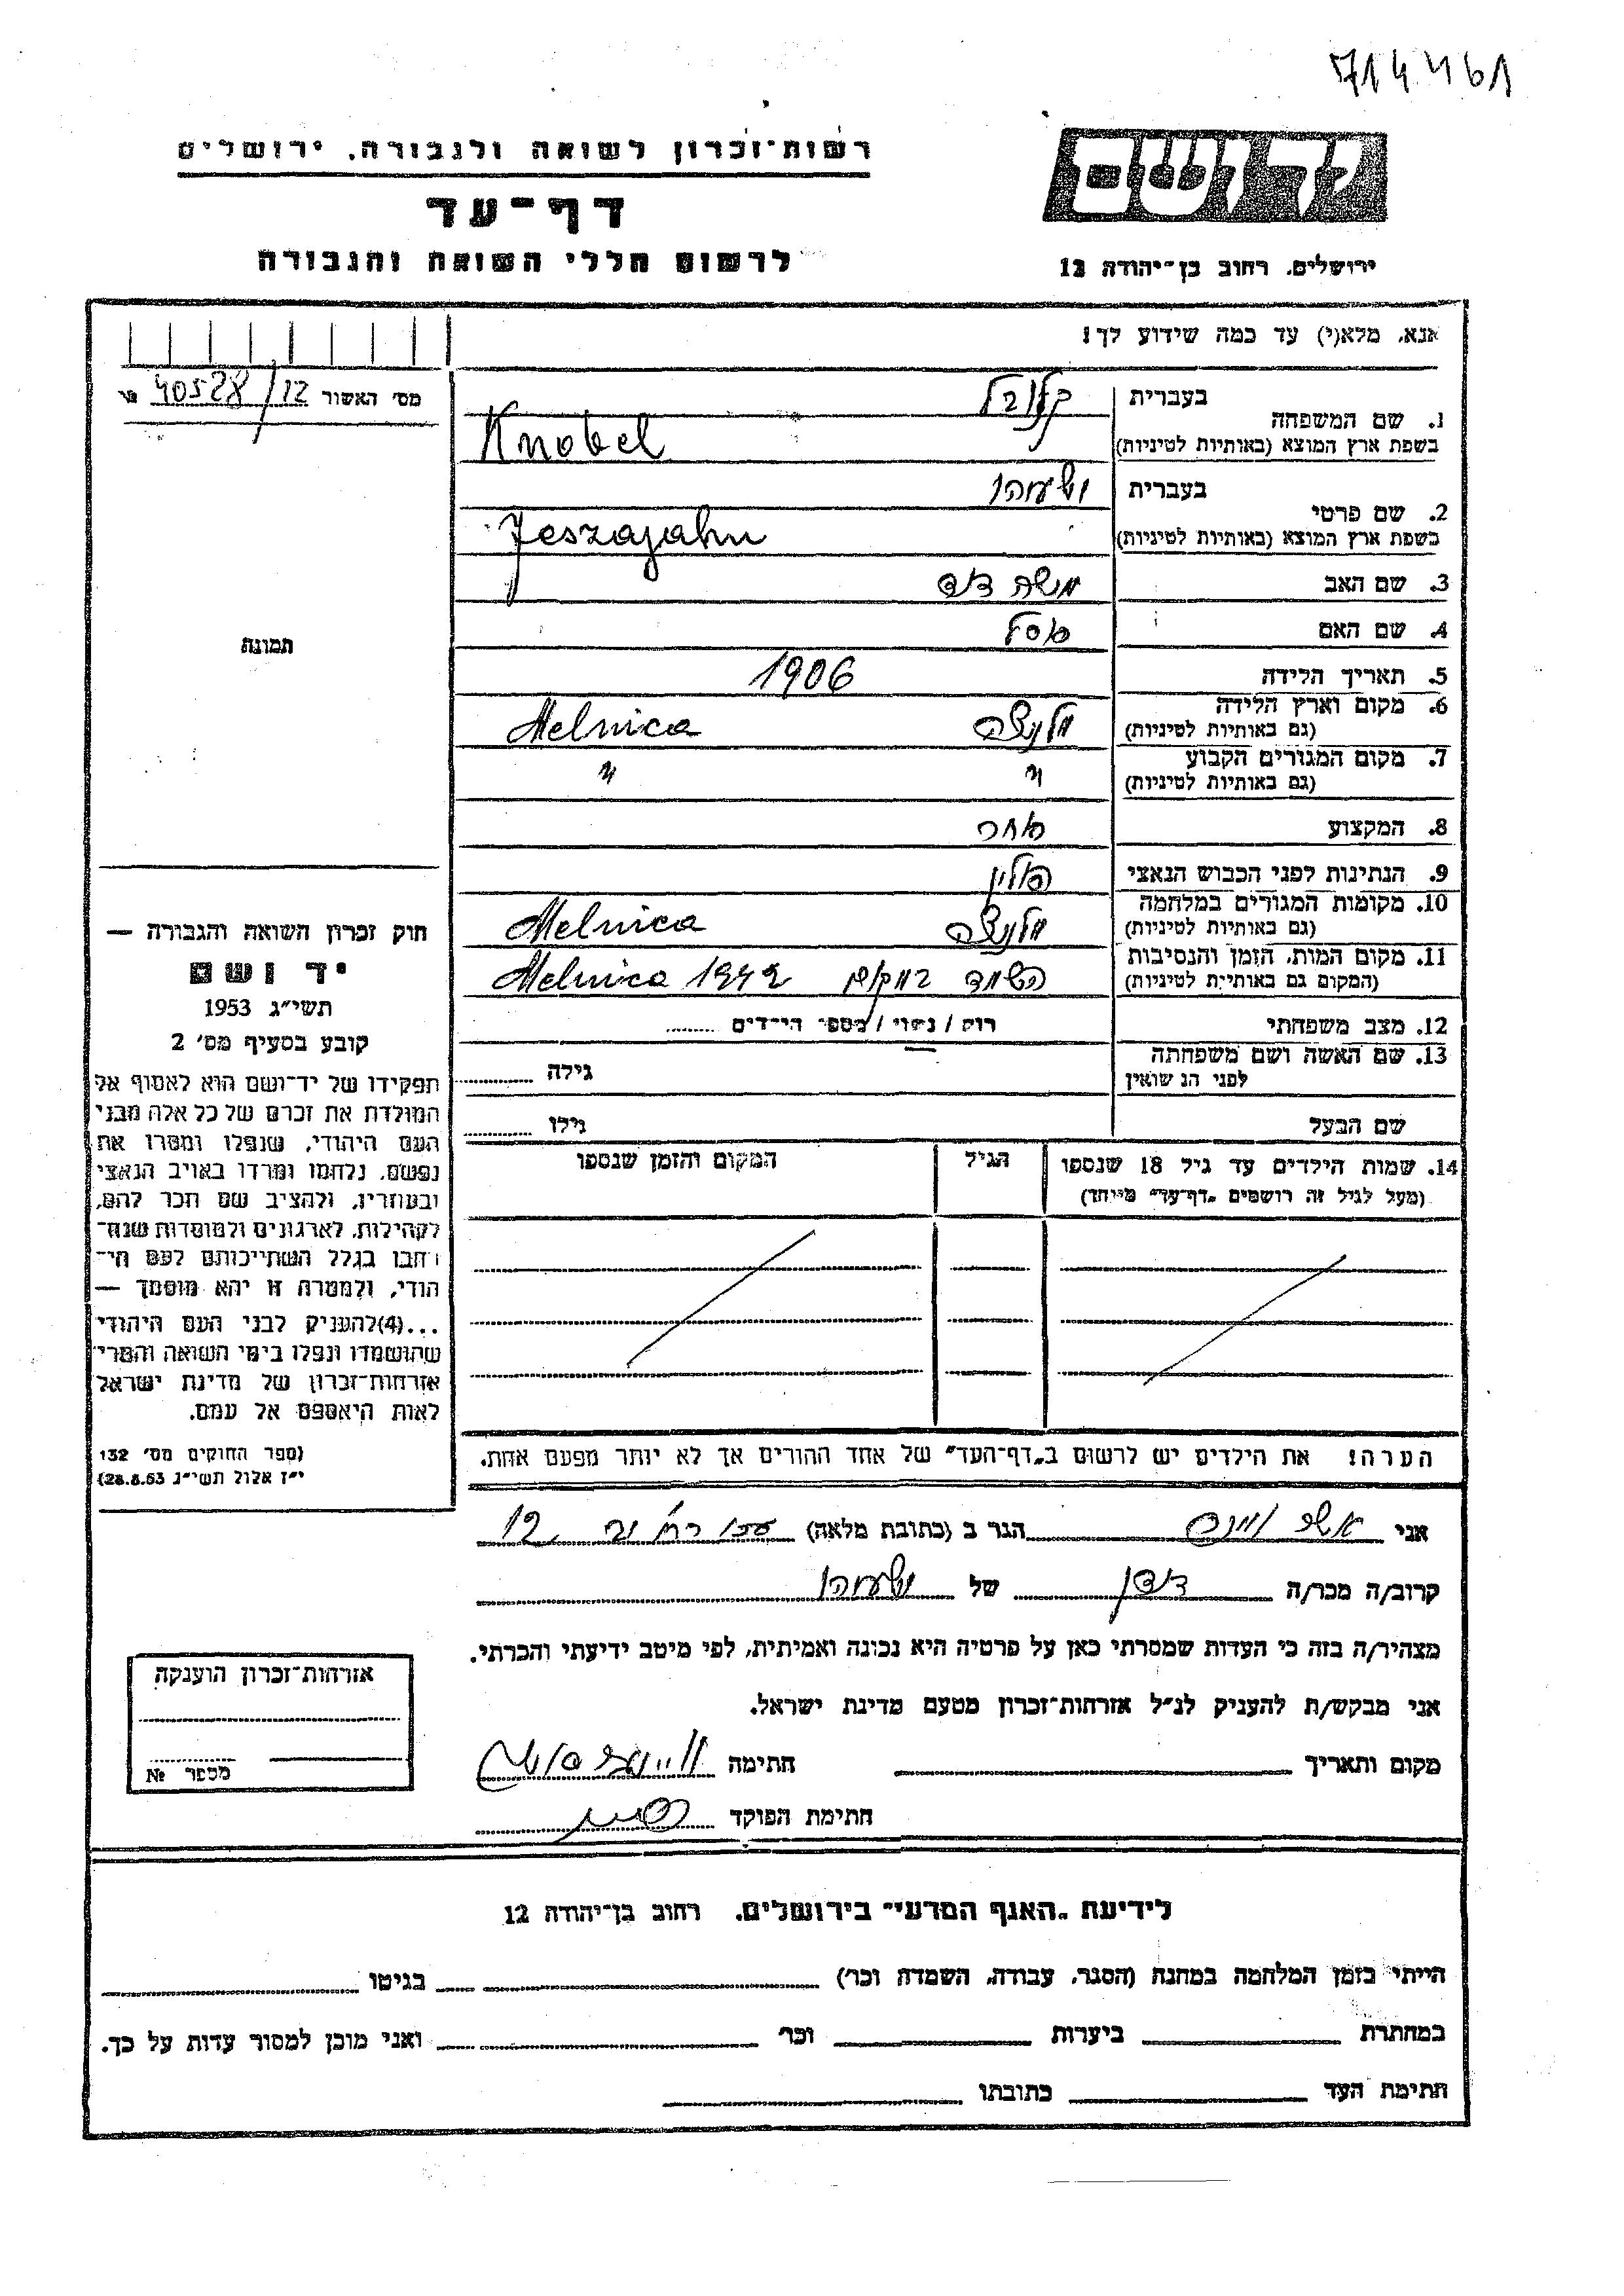 714461
רשות־זכרון לשואה ולגבורה. ירושלים
דף־עד
לרשום חללי השואה והגבורה
ידושם
ירושלים. רחוב בן־יהודה 12
אנא, מלא(י) עד כמה שידוע לך!
מס׳ האשור 40528/12 №
1. שם המשפחה
בעברית קנובל
בשפת ארץ המוצא (באותיות לטיניות) Knobel
2. שם פרטי
בעברית ישעיהו
בשפת ארץ המוצא (באותיות לטיניות) Jeszajahu
3. שם האב משה דוד
4. שם האם פייסל
5. תאריך הלידה 1906
6. מקום וארץ הלידה
(גם באותיות לטיניות) מלניצה Melnica
7. מקום המגורים הקבוע
(גם באותיות לטיניות) " "
8. המקצוע סוחר
9. הנתינות לפני הכבוש הנאצי פולין
10. מקומות המגורים במלחמה
(גם באותיות לטיניות) מלניצה Melnica
11. מקום המות, הזמן והנסיבות
(המקום גם באותיות לטיניות) הושמד במקום Melnica 1942
12. מצב משפחתי רווק / נשוי / מספר הילדים
13. שם האשה ושם משפחתה
לפני הנישואין
גילה
שם הבעל גילו
14. שמות הילדים עד גיל 18 שנספו הגיל המקום והזמן שנספו
(מעל לגיל זה רושמים „דף־עד״ מיוחד)
הערה! את הילדים יש לרשום ב„דף־העד״ של אחד ההורים אך לא יותר מפעם אחת.
תמונה
חוק זכרון השואה והגבורה —
יד ושם
תשי״ג 1953
קובע בסעיף מס׳ 2
תפקידו של יד־ושם הוא לאסוף אל
המולדת את זכרם של כל אלה מבני
העם היהודי, שנפלו ומסרו את
נפשם, נלחמו ומרדו באויב הנאצי
ובעוזריו, ולהציב שם וזכר להם,
לקהילות, לארגונים ולמוסדות שנח־
רבו בגלל השתייכותם לעם הי־
הודי, ולמטרה זו יהא מוסמך —
...(4) להעניק לבני העם היהודי
שהושמדו ונפלו בימי השואה והמרי־
אזרחות־זכרון של מדינת ישראל
לאות היאספם אל עמם.
(ספר החוקים מס׳ 132
י״ז אלול תשי״ג 28.8.53)
אני אשר הגר ב (כתובת מלאה) 12
קרוב/ה מכר/ה דודן של ישעיהו
מצהיר/ה בזה כי העדות שמסרתי כאן על פרטיה היא נכונה ואמיתית, לפי מיטב ידיעתי והכרתי.
אני מבקש/ת להעניק לנ״ל אזרחות־זכרון מטעם מדינת ישראל.
מקום ותאריך חתימה
חתימת הפוקד
אזרחות־זכרון הוענקה
מספר №
לידיעת „האגף המדעי״ בירושלים. רחוב בן־יהודה 12
הייתי בזמן המלחמה במחנה (הסגר, עבודה, השמדה וכו׳) בגיטו
במחתרת ביערות וכו׳ ואני מוכן למסור עדות על כך.
חתימת העד כתובתו